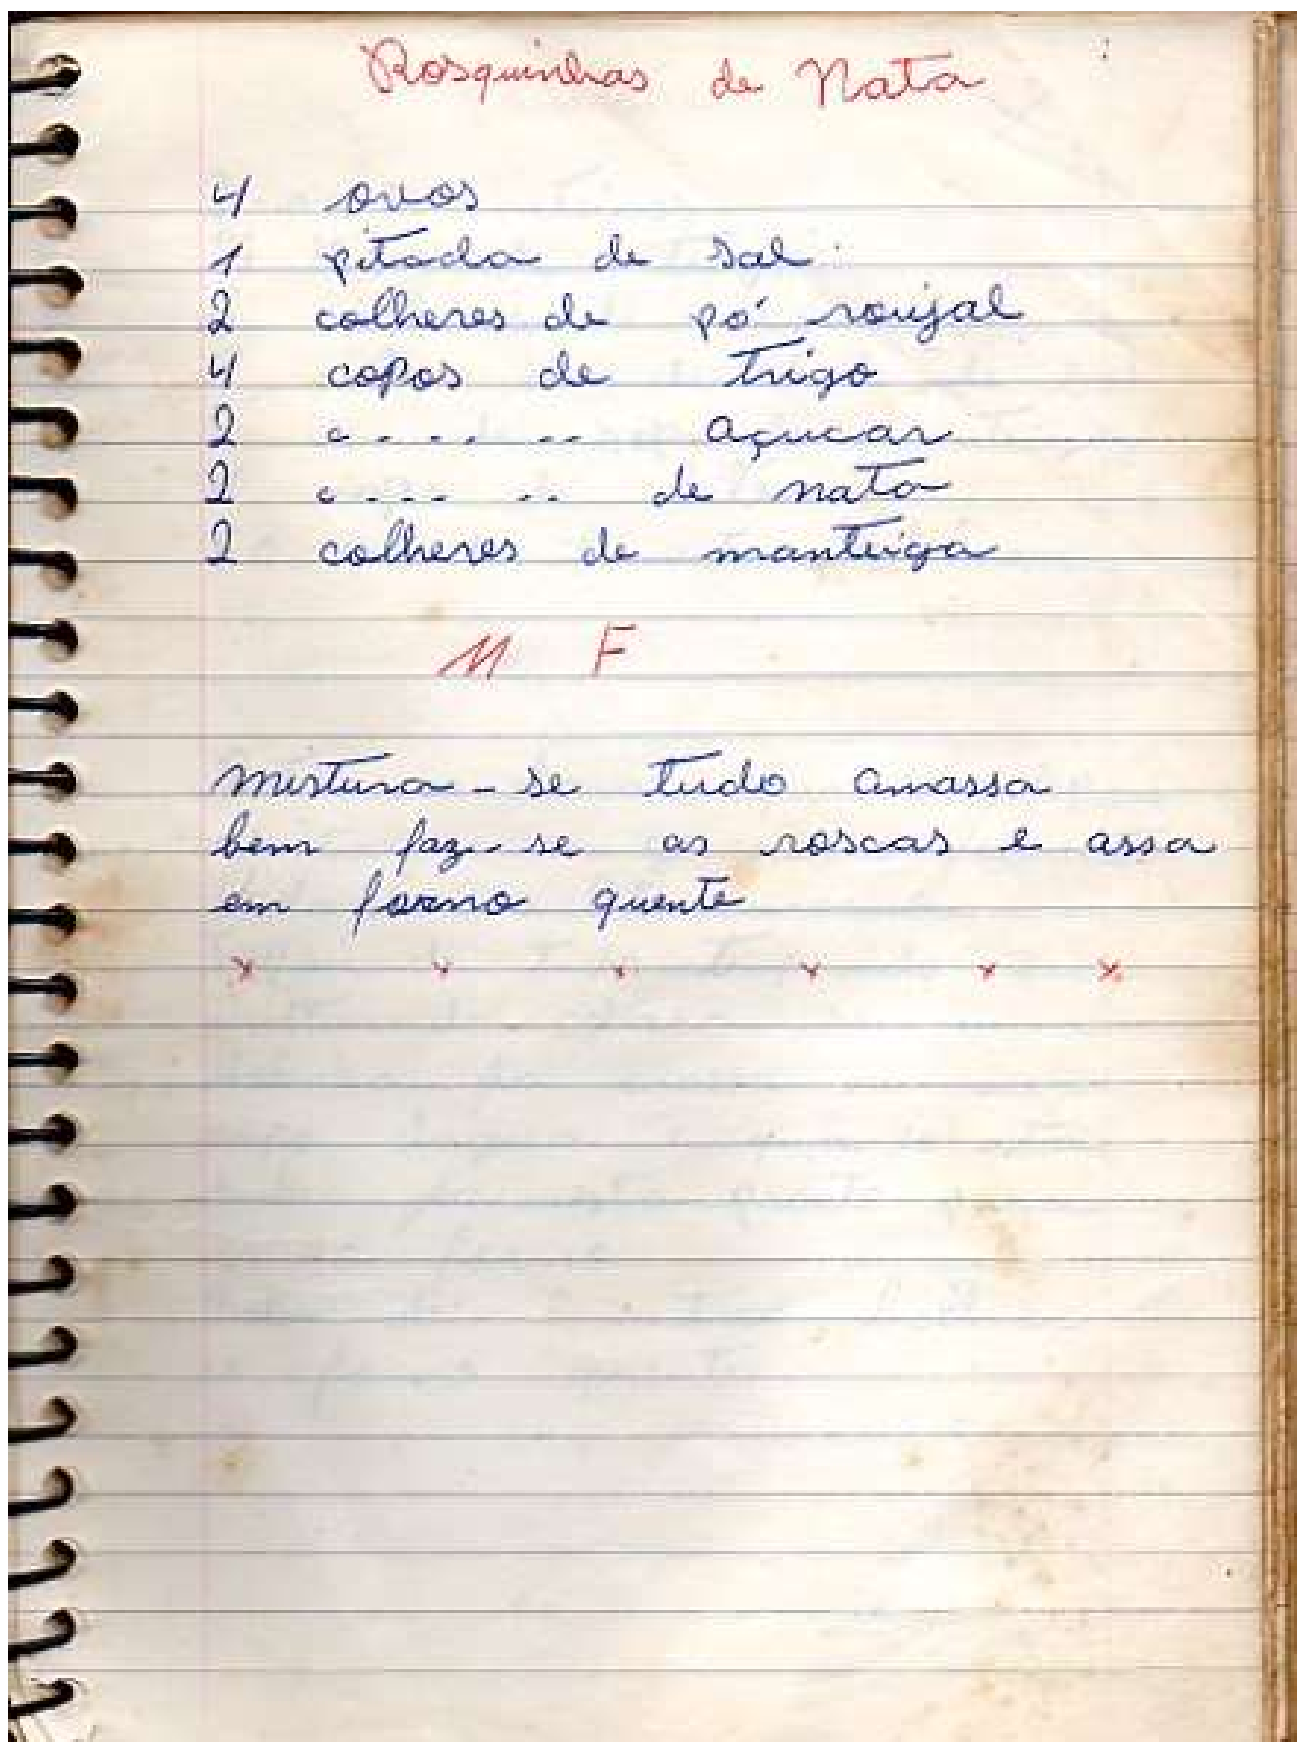 Rosquinhas de Nata
4 ovos
1 pitada de sal
2 colheres de pó roujal
4 copos de trigo
2 c . . . . . . açucar
2 c . . . . . de nata
2 colheres de manteiga
M F
mistura-se tudo amassa
bem faz-se as roscas e assa
em forno quente
x x x x x x